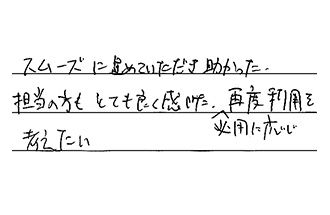 スムーズに進めていただき助かった。
担当の方もとても良く感じた。再度利用を
必用に応じ
考えたい